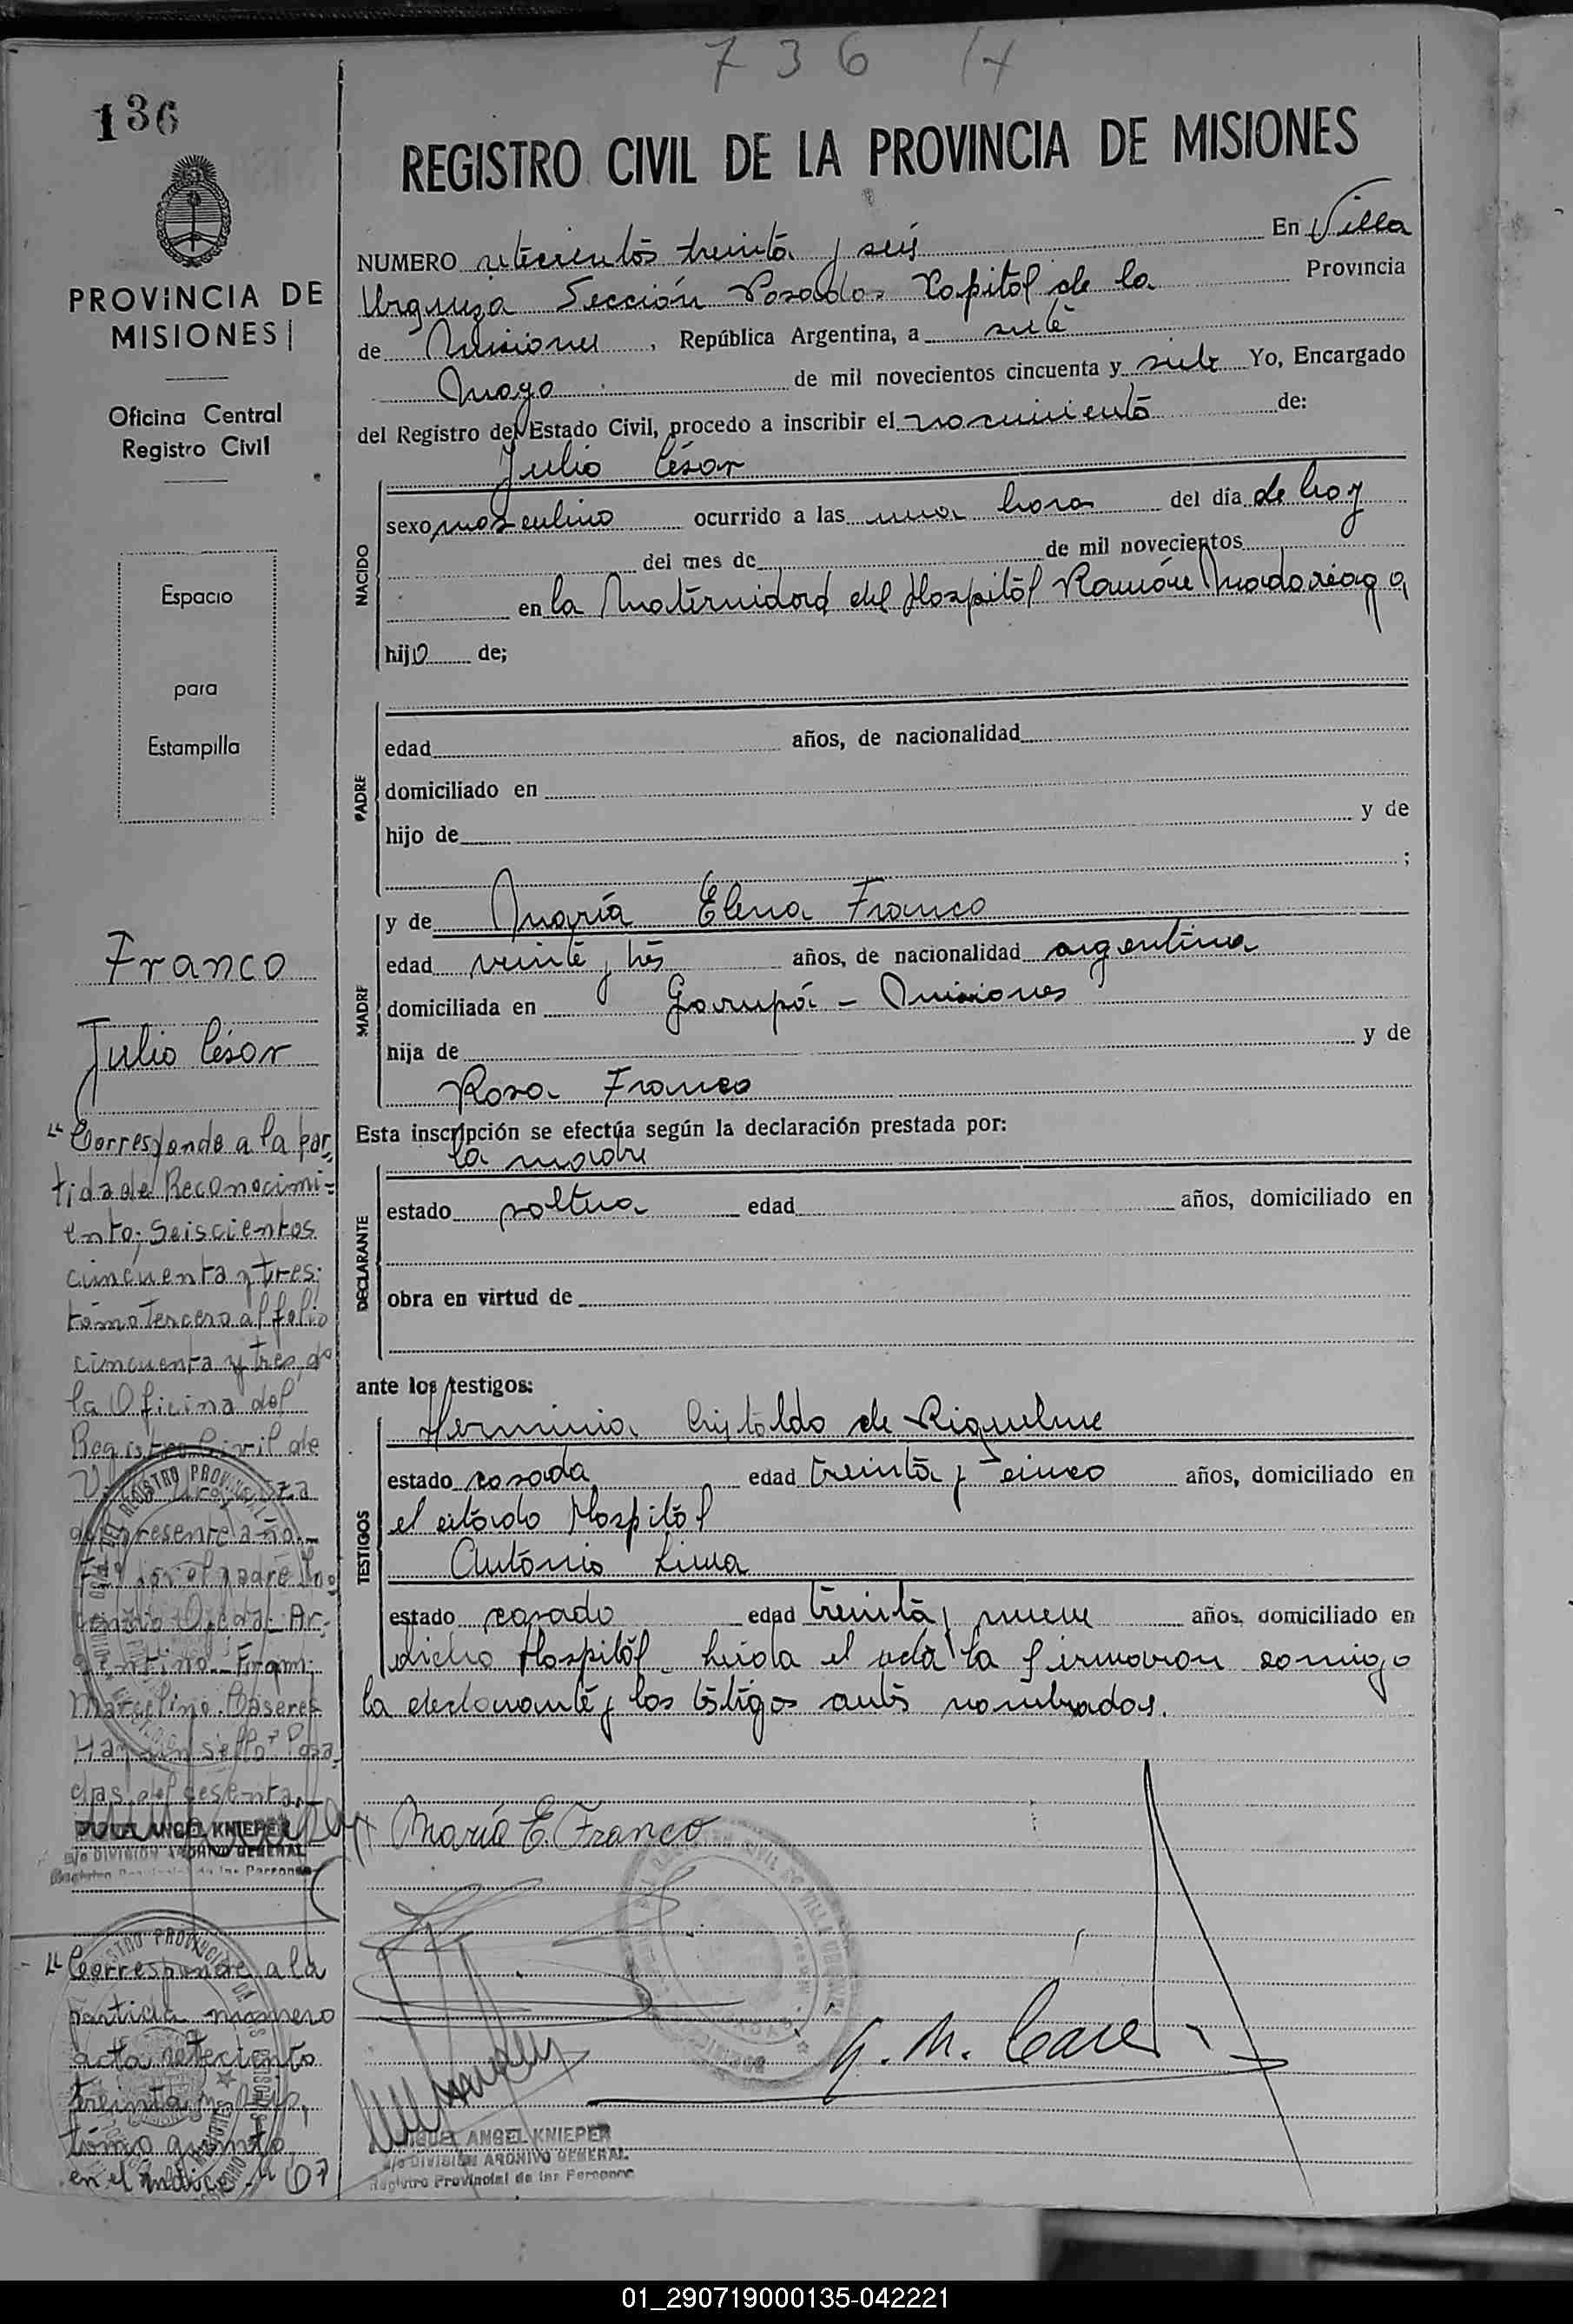 736
136
REGISTRO CIVIL DE LA PROVINCIA DE MISIONES
PROVINCIA DE
MISIONES
Oficina Central
Registro Civil
Espacio
para
Estampilla
NUMERO setecientos treinta y seis En Villa
Urquiza Sección Posadas Capital de la Provincia
de Misiones, República Argentina, a siete
Mayo de mil novecientos cincuenta y siete Yo, Encargado
del Registro del Estado Civil, procedo a inscribir el nacimiento de:
Julio César
NACIDO
sexo masculino ocurrido a las una horas del día de hoy
del mes de de mil novecientos
en la Maternidad del Hospital Ramón Madariaga
hijo de;
PADRE
edad años, de nacionalidad
domiciliado en
hijo de y de
;
y de María Elena Franco
MADRE
edad veinte y tres años, de nacionalidad argentina
domiciliada en Garupá - Misiones
hija de y de
Rosa Franco
Esta inscripción se efectúa según la declaración prestada por:
la madre
DECLARANTE
estado soltera edad años, domiciliado en
obra en virtud de
ante los testigos:
Herminia Cristaldo de Riquelme
TESTIGOS
estado casada edad treinta y cinco años, domiciliado en
el citado Hospital
Antonio Lima
estado casado edad treinta y nueve años, domiciliado en
dicho Hospital. Leida el acta la firmaron conmigo
la declarante y los testigos antes nombrados.
María E. Franco
MIGUEL ANGEL KNIEPER
a/c DIVISIÓN ARCHIVO GENERAL
Registro Provincial de las Personas
Franco
Julio César
"Corresponde a la par
tida de Reconocimi=
ento; Seiscientos
cincuenta y tres;
tomo Tercero al folio
cincuenta y tres, de
la Oficina del
Registro Civil de
Villa Urquiza
del presente año.-
por el padre
Ojeda Ar-
gentino. Firmo:
Marcelino Cáseres
Hay un sello" Posa
das
MIGUEL ANGEL KNIEPER
a/c DIVISION ARCHIVO GENERAL
Registro Provincial de las Personas
"Corresponde a la
partida número
acta seteciento
treinta y seis,
tomo quinto,
en el indice."
01_290719000135-042221